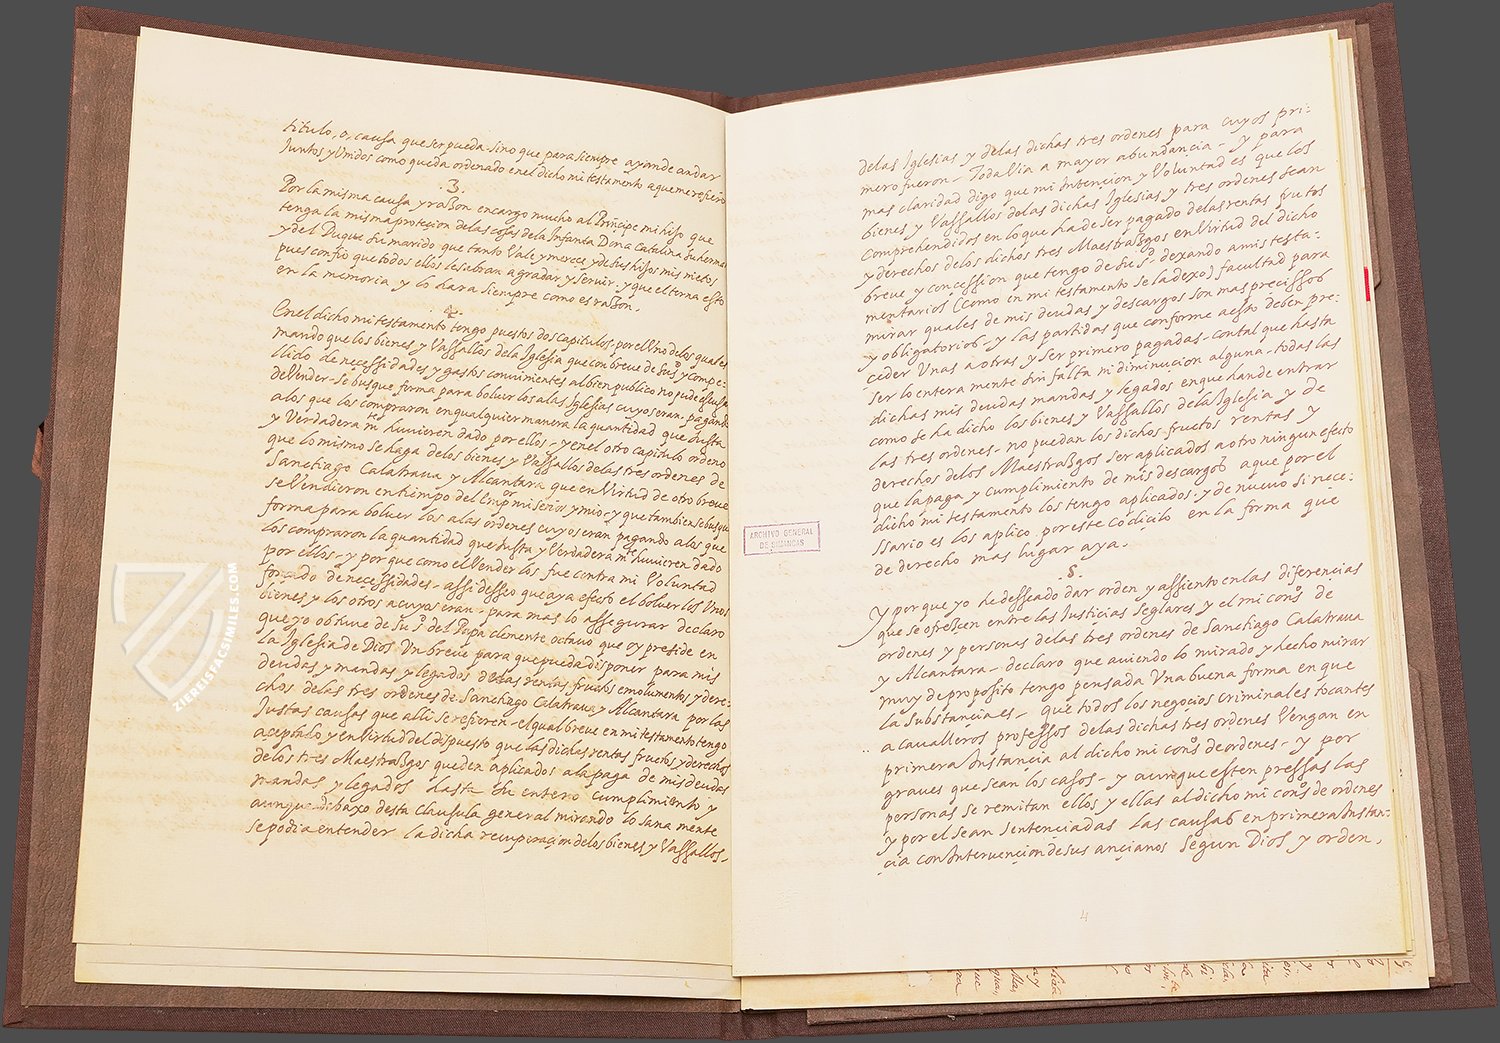 titulo, o, causa que ser pueda. sino que para siempre ayan de andar
Juntos y Unidos como queda ordenado en el dicho mi testamento a que me refiero
.3.
Por la misma causa y razon encargo mucho al Principe mi hijo que
tenga la misma protecion delas cosas dela Infanta Dona Catalina su hermana
y del Duque su marido que tanto Vale y merece y de sus hijos mis nietos
pues confio que todos ellos le sabran agradar y servir. y que el terna esto
en la memoria y lo hara siempre como es razon.
.4.
En el dicho mi testamento tengo puestos dos capitulos, por el Uno delos quales
mando que los bienes y Vassallos dela Iglesia que con breve de su sᵈ. y compe-
llido de necessidades y gastos convinientes al bien publico no pude escusar
de Vender - se busque forma para bolver los alas Iglesias cuyos eran. pagando
alos que los compraron en qualquier manera la quantidad que Justa
y Verdadera mᵗᵉ huvieren dado por ellos - y en el otro capitulo ordeno
que lo mismo se haga delos bienes y Vassallos delas tres ordenes de
Sanctiago Calatraua y Alcantara que en Virtud de otro breve
se Vendieron en tiempo del Empᵒʳ mi señor y mio - y que tambien se busque
forma para bolver los alas ordenes cuyos eran pagando alos que
los compraron la quantidad que Justa y Verdadera mᵗᵉ huvieren dado
por ellos - y por que como el Vender los fue contra mi Voluntad
forçado de necessidades - assi desseo que aya efecto el bolver los Unos
bienes y los otros a cuyos eran - para mas lo assegurar declaro
que yo obtuve de su sᵈ. del Papa clemente octavo que oy preside en
la Iglesia de Dios Un breve para que pueda disponer para mis
deudas y mandas y legados delas rentas fructos emolumentos y dere-
chos delas tres ordenes de Sanctiago Calatraua y Alcantara por las
Justas causas que alli se refieren - el qual breve en mi testamento tengo
aceptado y en Virtud del dispuesto que las dichas rentas fructos y derechos
delos tres Maestrazgos queden aplicados ala paga de mis deudas
mandas y legados hasta su entero cumplimiento y
aunque debaxo desta clausula general mirando lo sana mente
se podia entender la dicha recuperaçion delos bienes y Vassallos,
delas Iglesias y delas dichas tres ordenes para cuyos pri-
mero fueron - Toda Via a mayor abundancia - y para
mas claridad digo que mi Intençion y Voluntad es que los
bienes y Vassallos delas dichas Iglesias y tres ordenes sean
Comprehendidos en lo que ha de ser pagado delas rentas frutos
y derechos delos dichos tres Maestrazgos en Virtud del dicho
breve y concession que tengo de su sᵈ. dexando a mis testa-
mentarios (como en mi testamento se la dexo) facultad para
mirar quales de mis deudas y descargos son mas precissos
y obligatorios - y las partidas que conforme a esto deben pre-
ceder Unas a otras y ser primero pagadas - con tal que hasta
ser lo entera mente sin falta ni diminucion alguna - todas las
dichas mis deudas mandas y legados en que han de entrar
como se ha dicho los bienes y Vassallos dela Iglesia y de
las tres ordenes - no puedan los dichos fructos rentas y
derechos delos Maestrazgos ser aplicados a otro ningun efecto
que la paga y cumplimiento de mis descargos a que por el
dicho mi testamento los tengo aplicados - y de nuevo si nece-
ssario es los aplico por este codicilo en la forma que
de derecho mas lugar aya.
.5.
Y por que yo he desseado dar orden y assiento en las diferencias
que se ofrescen entre las Justicias seglares y el mi consᵒ de
ordenes y personas delas tres ordenes de Sanctiago Calatraua
y Alcantara - declaro que aviendo lo mirado y hecho mirar
muy de proposito tengo pensada Una buena forma en que
la substancia es - que todos los negocios Criminales tocantes
a cavalleros professos delas dichas tres ordenes Vengan en
primera Instancia al dicho mi consᵒ de ordenes - y por
graves que sean los casos - y aunque esten pressas las
personas se remitan ellos y ellas al dicho mi consᵒ de ordenes
y por el sean sentenciadas las causas en primera Instan-
cia con Intervençion de sus ançianos segun Dios y orden,
4
ARCHIVO GENERAL
DE SIMANCAS
ZIEREISFACSIMILES.COM